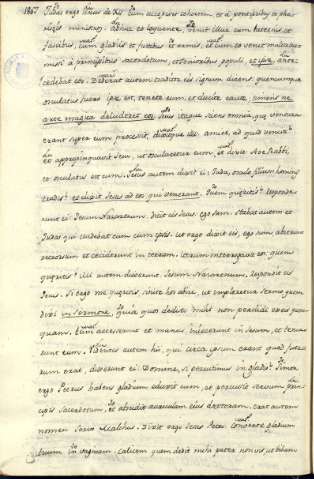 1867
Iudas ergo unus de XII cum accepisset cohortem, et à pontificibus et pha-
risæis ministros, adhuc eo loquente, venit illuc cum laternis et
facibus, cum gladiis et fustibus et armis, et cum eo venit
missi à principibus sacerdotum, et senioribus populi, et ipse ante-
cedebat eos. Dederat autem traditor eis signum dicens: quemcumque
osculatus fuero ipse est, tenete eum, et ducite caute, timens ne
arte magica deluderet eos. Jesus itaque sciens omnia, quæ ventura
erant super eum processit, dixitque ei: amice, ad quid venisti?
appropinquavit Jesu, ut oscularetur eum, et dixit Ave Rabbi,
et osculatus est eum. Jesus autem dixit ei: Iuda, osculo filium hominis
tradis? et dixit Jesus ad eos qui venerant. Quem quæritis? responde-
runt ei: Jesum Nazarenum. dicit eis Jesus: ego sum. stabat autem et
Iudas qui tradebat eum cum ipsis. ut ergo dixit eis, ego sum abierunt
retrorsum et ceciderunt in terram. iterum interrogavit eos: quem
quæritis? illi autem dixerunt. Jesum Nazarenum. respondit eis
Jesus. Si ergo me quæritis, sinite hos abire, ut impleretur sermo quem
dixi in sermone. Quia quos dedisti mihi non perdidi ex eis quem-
quam. tunc accesserunt et manus iniecerunt in Jesum, et tenue-
runt eum. Videntes autem hi, qui circa ipsum erant quod futu-
rum erat, dixerunt ei: Domine, si percutimus in gladio? Simon
ergo Petrus habens gladium eduxit eum, et percussit servum prin-
cipis Sacerdotum, et abscidit auriculam eius dexteram. erat autem
nomen servo Malchus. Dixit ergo Jesus Petro converte gladium
tuum in vaginam. calicem quem dedit mihi pater non vis ut bibam